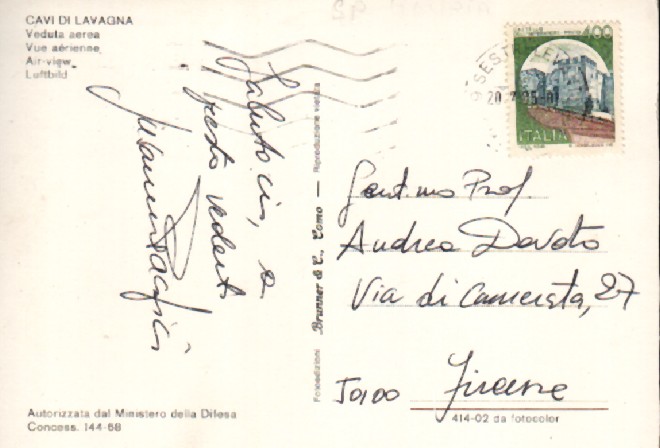 CAVI DI LAVAGNA
Veduta aerea
Vue aérienne
Air-view
Luftbild
400
ITALIA
SESTRI LEV
20
Saluto cis, a
presto vederti
Gent.mo Prof.
Andrea Devoto
Via di Camerata, 27
50100 Firenze
Fotoedizioni Brunner & C., Como — Riproduzione vietata
Autorizzata dal Ministero della Difesa
Concess. 144-68
414-02 da fotocolor